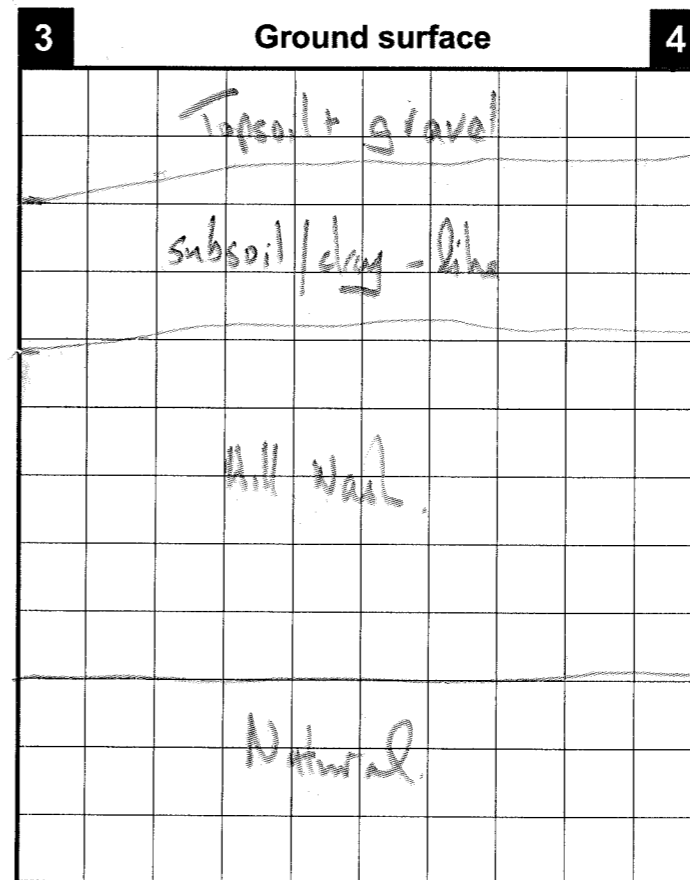 3 Ground surface 4
Topsoil + gravel
subsoil / clay - like
Hill Wash.
Natural.